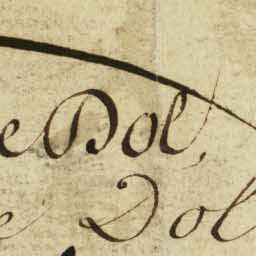 e Dol,
e Dol